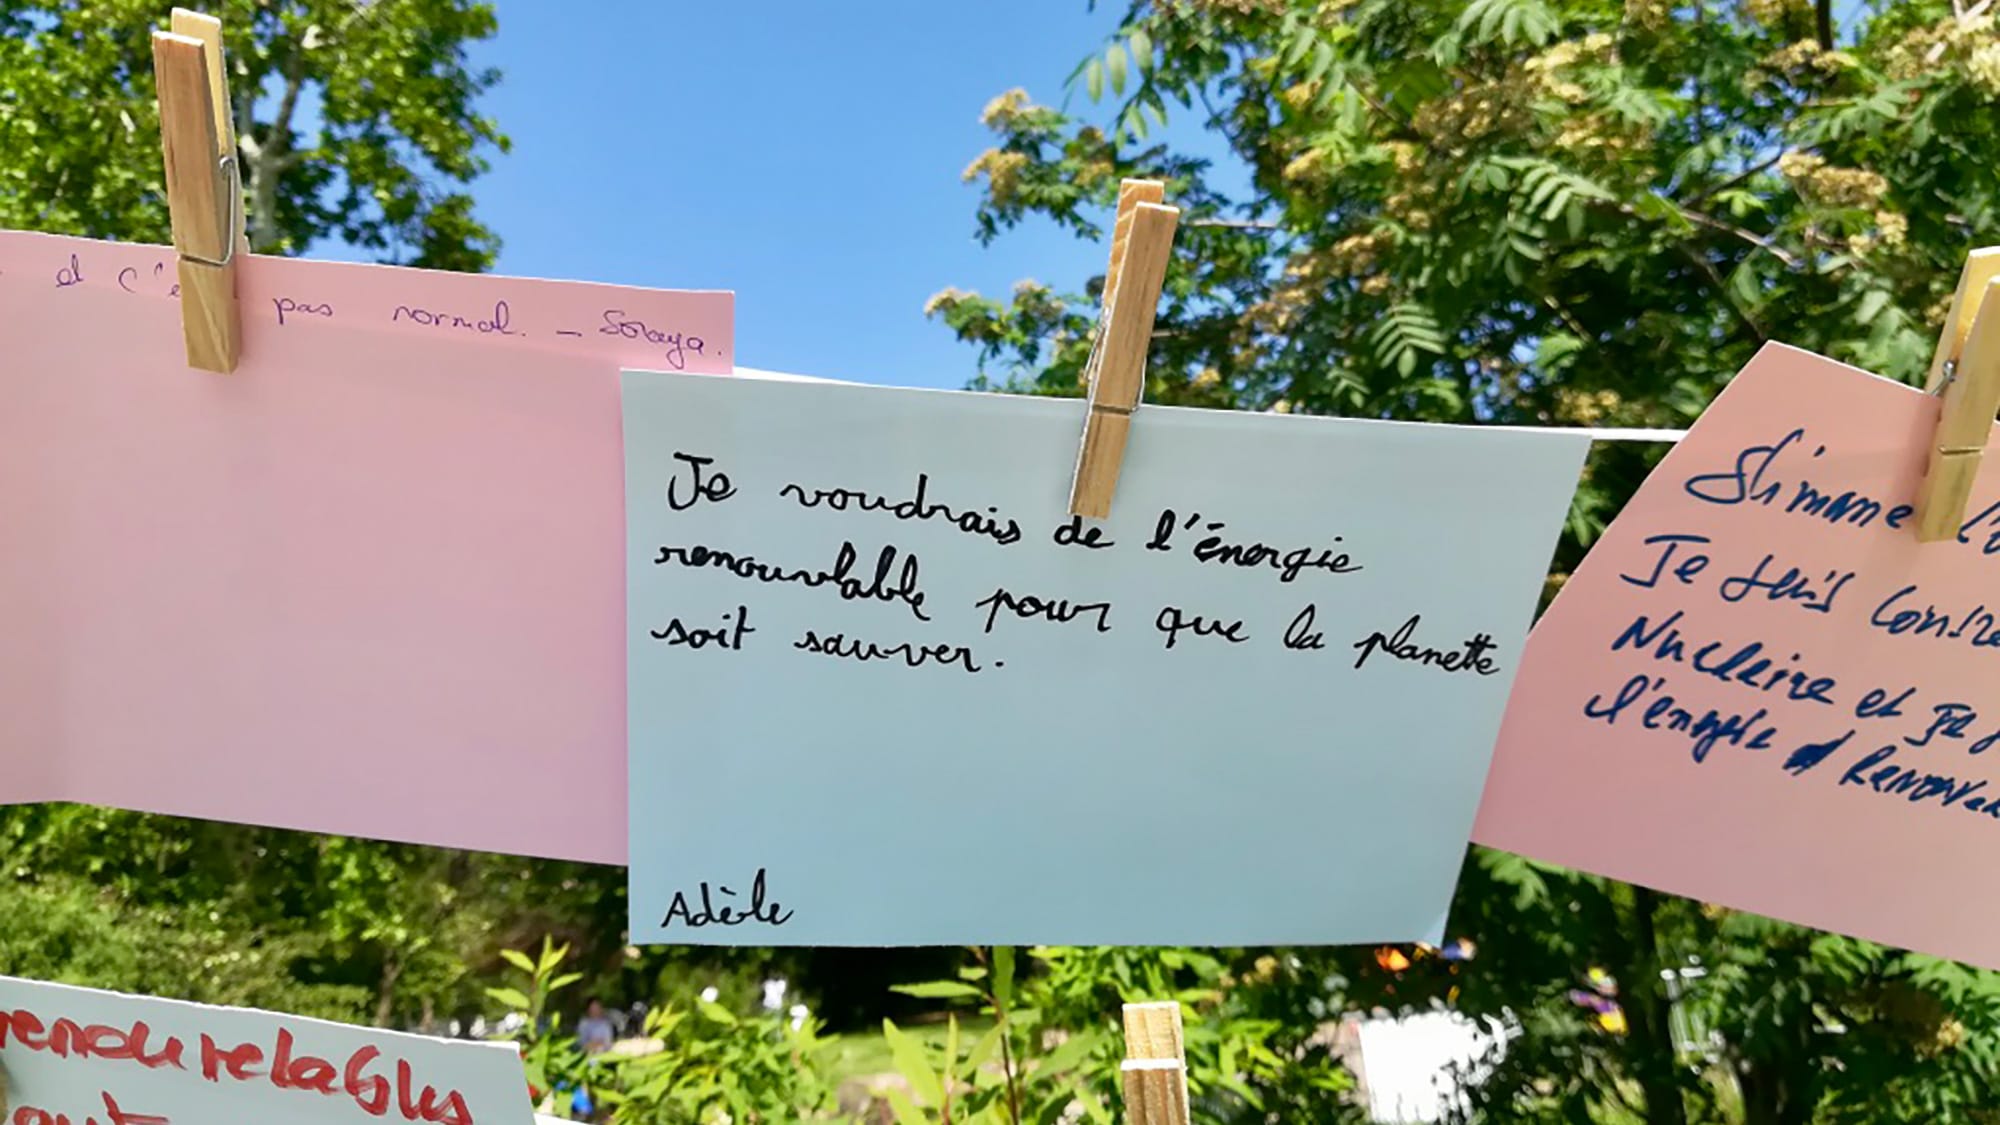 et c'e pas normal. - Soraya.
Je voudrais de l'énergie
renouvlable pour que la planette
soit sauver.
Adèle
Slimane l'
Je suis Contre
Nucléaire et Je
l'énergie Renouve
renouvelables